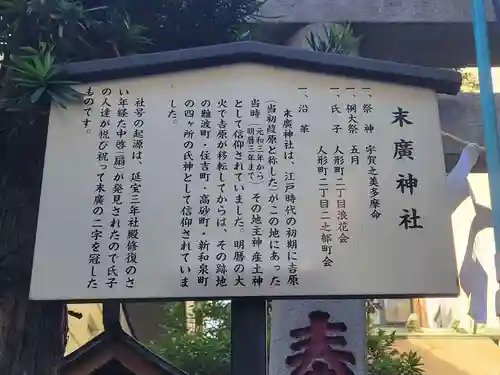 末廣神社
一、祭神　宇賀之美多摩命
一、例大祭　五月
一、氏子　人形町二丁目浪花会
人形町二丁目二之部町会
一、沿革
末廣神社は、江戸時代の初期に吉原
（当初葭原と称した）がこの地にあった
当時（元和三年から明暦三年まで）その地主神 産土神
として信仰されていました。明暦の大
火で吉原が移転してからは、その跡地
の難波町・住吉町・高砂町・新和泉町
の四ヶ所の氏神として信仰されていま
した。
社号の起源は、延宝三年社殿修復のさ
い年経た中啓（扇）が発見されたので氏子
の人達が悦び祝って末廣の二字を冠した
ものです。
奉